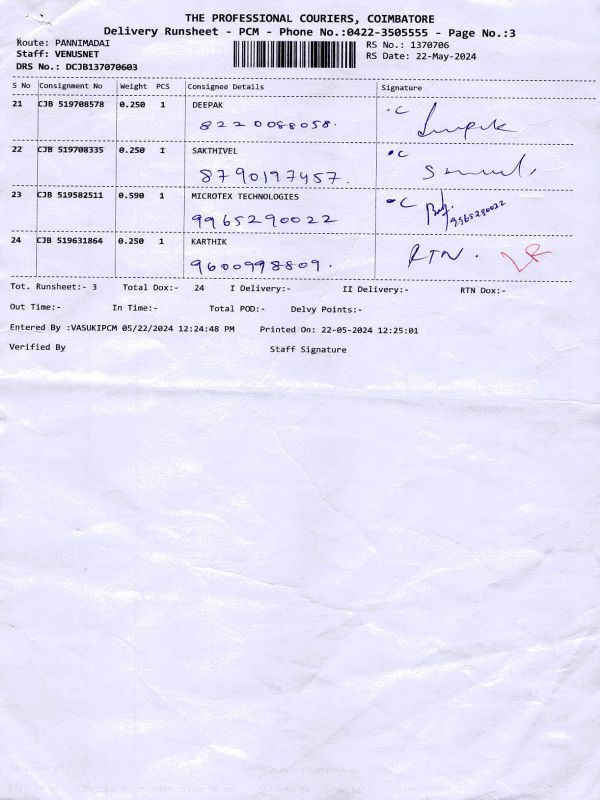 THE PROFESSIONAL COURIERS, COIMBATORE
Delivery Runsheet - PCM - Phone No.:0422-3505555 - Page No.:3
Route: PANNIMADAI RS No.: 1370706
Staff: VENUSNET RS Date: 22-May-2024
DRS No.: DCJB137070603
S No Consignment No Weight PCS Consignee Details Signature
21 CJB 519708578 0.250 1 DEEPAK .C
8220088058.
22 CJB 519708335 0.250 1 SAKTHIVEL .C
8790197457.
23 CJB 519582511 0.590 1 MICROTEX TECHNOLOGIES .C
9965290022 9965290022
24 CJB 519631864 0.250 1 KARTHIK RTN.
9600998809.
Tot. Runsheet:- 3 Total Dox:- 24 I Delivery:- II Delivery:- RTN Dox:-
Out Time:- In Time:- Total POD:- Delvy Points:-
Entered By :VASUKIPCM 05/22/2024 12:24:48 PM Printed On: 22-05-2024 12:25:01
Verified By Staff Signature